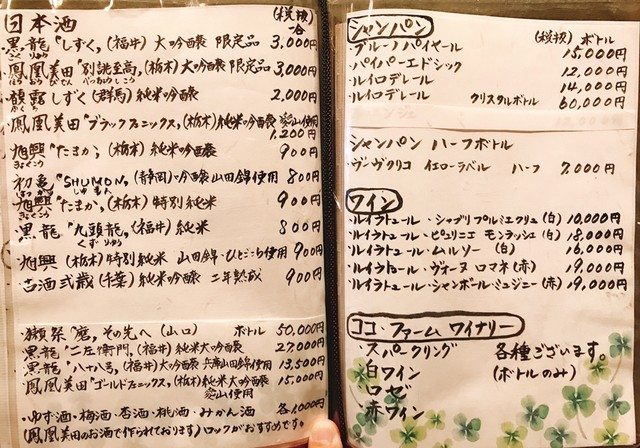 日本酒 (税抜)各
黒龍"しずく"(福井)大吟醸 限定品 3,000円
こくりゅう
鳳凰美田"別誂至高"(栃木)大吟醸 限定品 3,000円
ほうおうびでん べつあつらえしこう
馥露しずく(群馬)純米吟醸 2,000円
ふくろ
鳳凰美田"ブラックフェニックス"(栃木)純米吟醸 愛山使用
1,200円
旭興"たまか"(栃木)純米吟醸 900円
きょくこう
初亀"SHUMON"(静岡)吟醸山田錦使用 800円
はつかめ しゅもん
旭興"たまか"(栃木)特別純米 900円
きょくこう
黒龍"九頭龍"(福井)純米 800円
くずりゅう
旭興(栃木)特別純米 山田錦・ひとごこち使用 900円
古酒弐歳(千葉)純米吟醸 二年熟成 900円
獺祭"磨"その先へ(山口) ボトル 50,000円
黒龍"二左衛門"(福井)純米大吟醸 27,000円
黒龍"八十八号"(福井)大吟醸兵庫山田錦使用 13,500円
鳳凰美田"ゴールドフェニックス"(栃木)純米大吟醸 15,000円
愛山使用
ゆず酒・梅酒・杏酒・桃酒・みかん酒 各1,000円
(鳳凰美田のお酒で作られております)ロックがおすすめです。
シャンパン
(税抜)ボトル
・ブルーノパイヤール 15,000円
・パイパーエドシック 12,000円
・ルイロデレール 14,000円
・ルイロデレール クリスタルボトル 60,000円
シャンパン ハーフボトル
・ヴーヴクリコ イエローラベル ハーフ 7,000円
ワイン
・ルイラトゥール・シャブリプルミエクリュ(白) 10,000円
・ルイラトゥール・ピュリニエ モンラッシェ(白) 18,000円
・ルイラトゥール・ムルソー(白) 16,000円
・ルイラトゥール・ヴォーヌロマネ(赤) 19,000円
・ルイラトゥール・シャンボールミュジニー(赤) 19,000円
ココ・ファームワイナリー
・スパークリング 各種ございます。
白ワイン (ボトルのみ)
ロゼ
赤ワイン